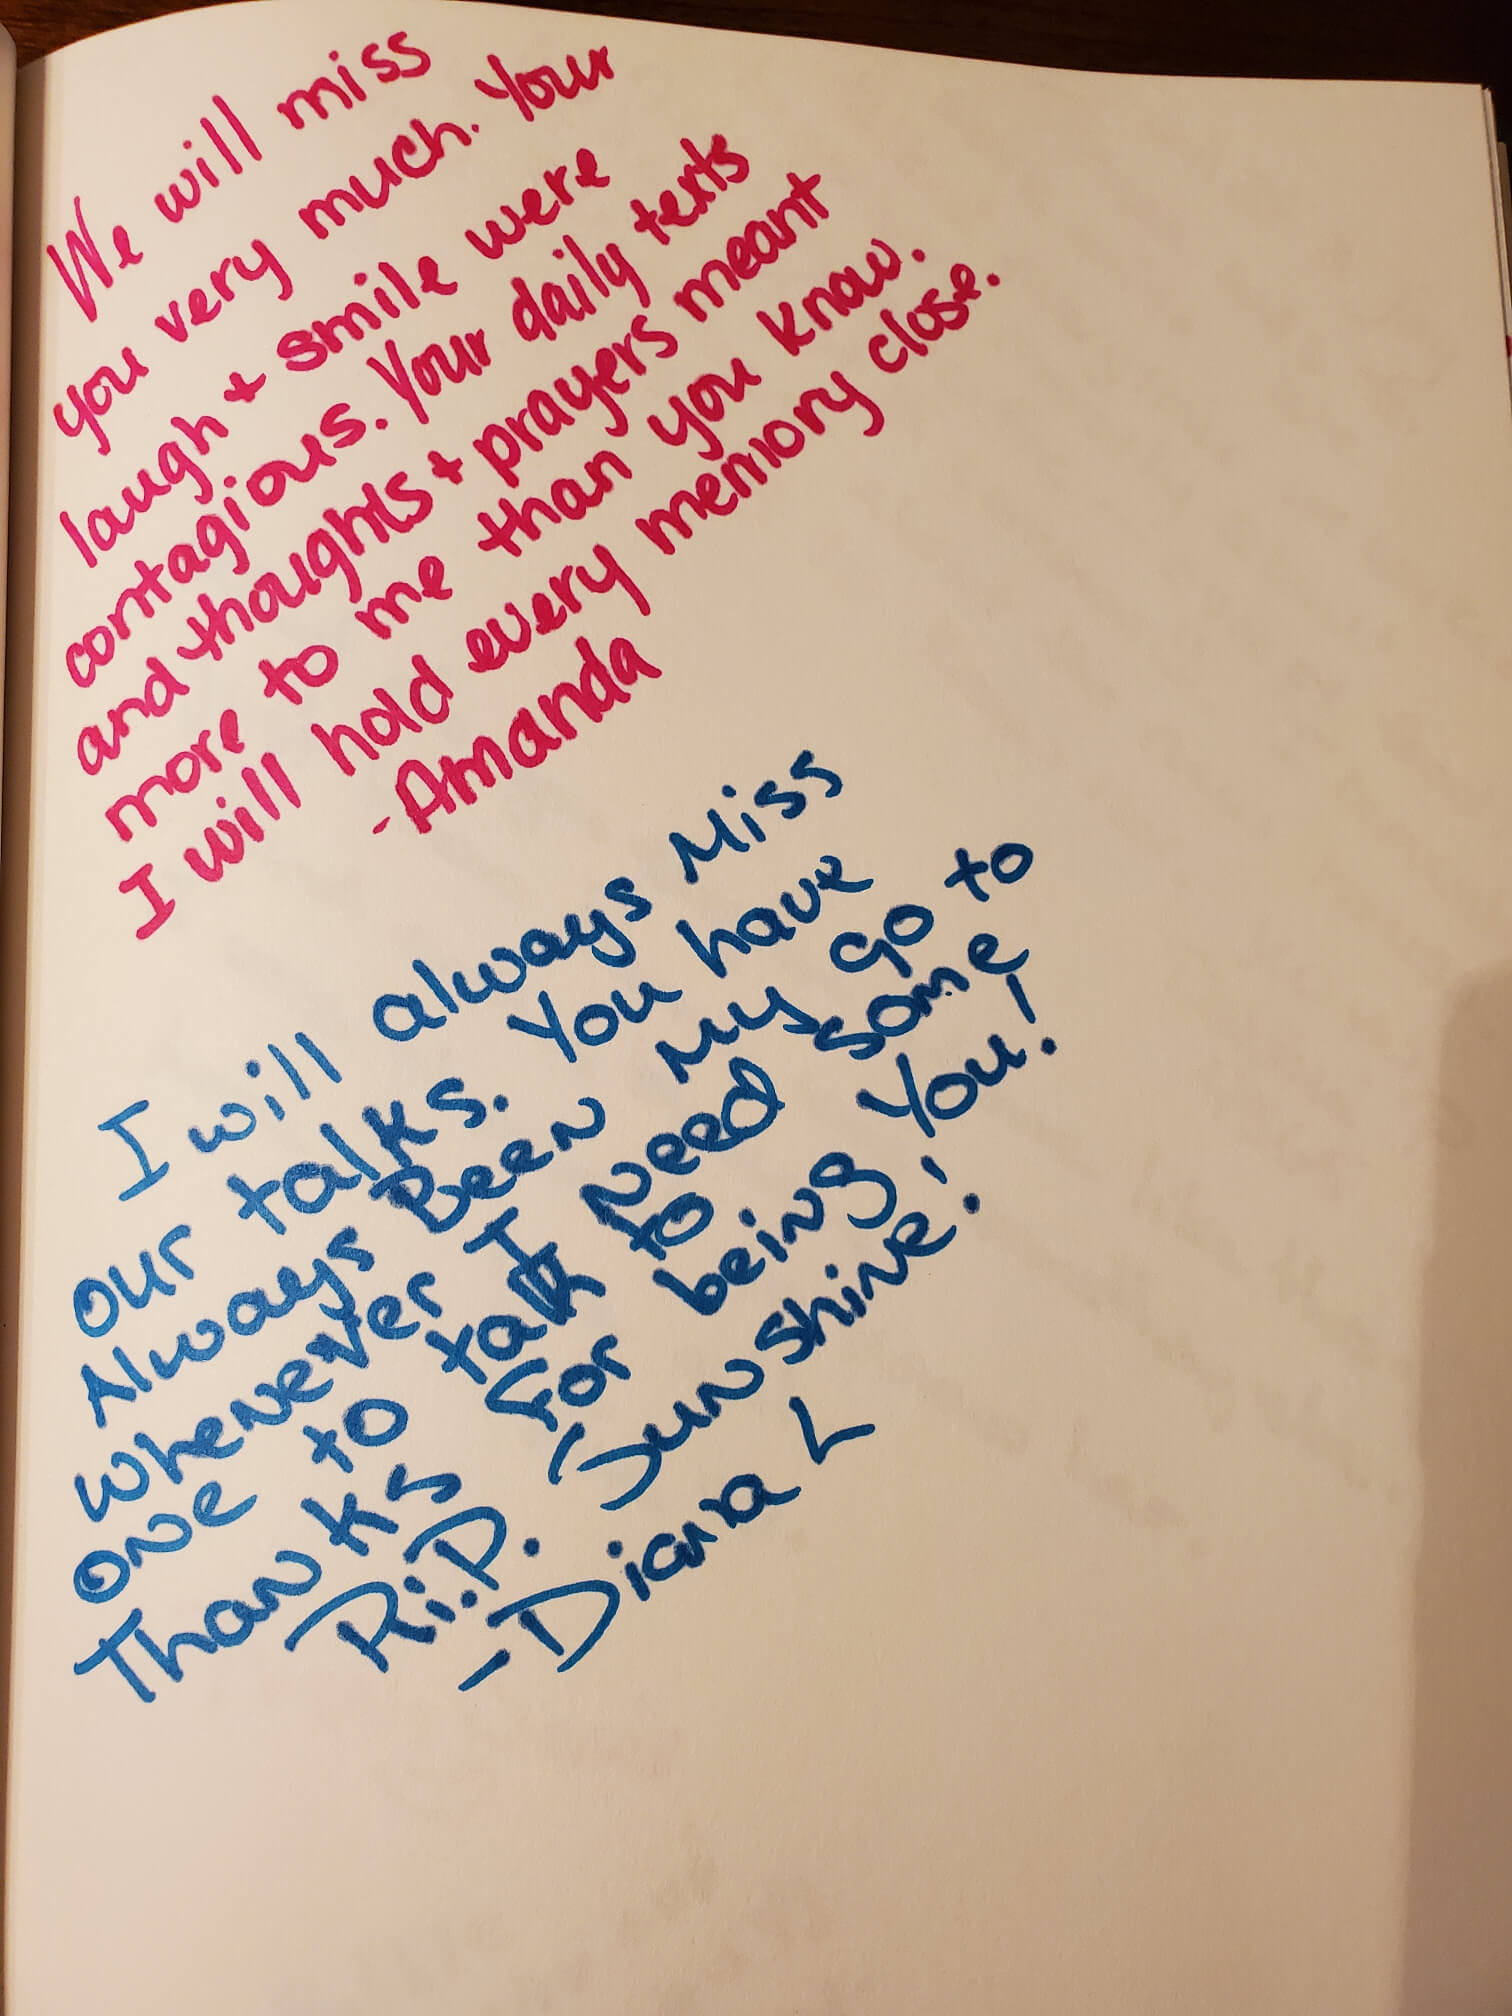 We will miss
you very much. Your
laugh + smile were
contagious. Your daily texts
and thoughts + prayers meant
more to me than you know.
I will hold every memory close.
-Amanda
I will always Miss
our talks. You have
Always Been My go to
whenever I need some
one to talk to
Thanks for being You!
R.i.P. Sunshine!
-Diana L